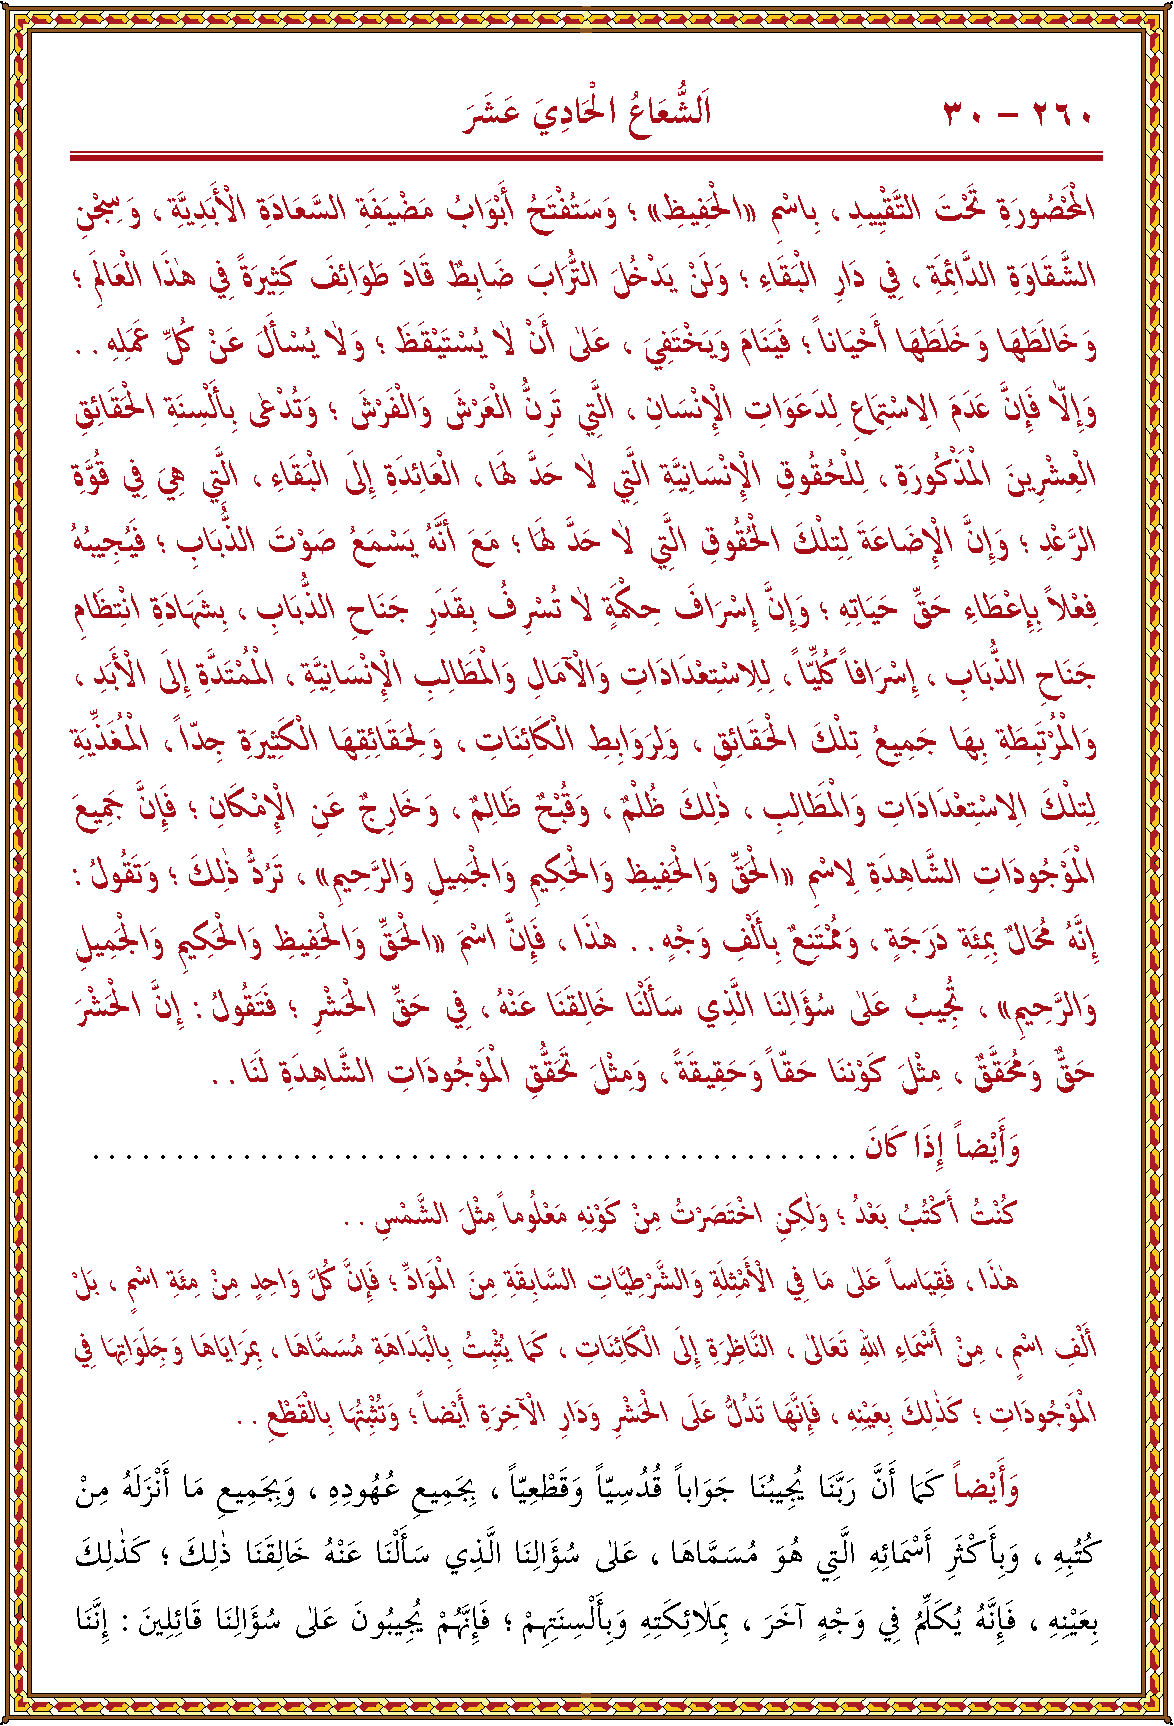 ٢٦٠ – ٣٠ اَلشُّعَاعُ الْحَادِيَ عَشَرَ
الْمَحْصُورَةِ تَحْتَ التَّقْيِيدِ ، بِاسْمِ «الْحَفِيظِ» ؛ وَسَتُفْتَحُ أَبْوَابُ مَضْيَفَةِ السَّعَادَةِ الْأَبَدِيَّةِ ، وَسِجْنِ
الشَّقَاوَةِ الدَّائِمَةِ ، فِي دَارِ الْبَقَاءِ ؛ وَلَنْ يَدْخُلَ التُّرَابَ ضَابِطٌ قَادَ طَوَائِفَ كَثِيرَةً فِي هٰذَا الْعَالَمِ ؛
وَخَالَطَهَا وَخَلَطَهَا أَحْيَاناً ؛ فَيَنَامَ وَيَخْتَفِيَ ، عَلىٰ أَنْ لٰا يُسْتَيْقَظَ ؛ وَلٰا يُسْأَلَ عَنْ كُلِّ عَمَلِهِ . .
وَإِلّٰا فَإِنَّ عَدَمَ الِاسْتِمَاعِ لِدَعَوَاتِ الْإِنْسَانِ ، الَّتِي تَرِنُّ الْعَرْشَ وَالْفَرْشَ ؛ وَتُدْعٰى بِأَلْسِنَةِ الْحَقَائِقِ
الْعِشْرِينَ الْمَذْكُورَةِ ، لِلْحُقُوقِ الْإِنْسَانِيَّةِ الَّتِي لٰا حَدَّ لَهَا ، الْعَائِدَةِ إِلَى الْبَقَاءِ ، الَّتِي هِيَ فِي قُوَّةِ
الرَّعْدِ ؛ وَإِنَّ الْإِضَاعَةَ لِتِلْكَ الْحُقُوقِ الَّتِي لٰا حَدَّ لَهَا ؛ مَعَ أَنَّهُ يَسْمَعُ صَوْتَ الذُّبَابِ ؛ فَيُجِيبُهُ
فِعْلاً بِإِعْطَاءِ حَقِّ حَيَاتِهِ ؛ وَإِنَّ إِسْرَافَ حِكْمَةٍ لٰا تُسْرِفُ بِقَدَرِ جَنَاحِ الذُّبَابِ ، بِشَهَادَةِ انْتِظَامِ
جَنَاحِ الذُّبَابِ ، إِسْرَافاً كُلِّيّاً ، لِلِاسْتِعْدَادَاتِ وَالْآمَالِ وَالْمَطَالِبِ الْإِنْسَانِيَّةِ ، الْمُمْتَدَّةِ إِلَى الْأَبَدِ ،
وَالْمُرْتَبِطَةِ بِهَا جَمِيعُ تِلْكَ الْحَقَائِقِ ، وَلِرَوَابِطِ الْكَائِنَاتِ ، وَلِحَقَائِقِهَا الْكَثِيرَةِ جِدّاً ، الْمُغَذِّيَةِ
لِتِلْكَ الِاسْتِعْدَادَاتِ وَالْمَطَالِبِ ، ذٰلِكَ ظُلْمٌ ، وَقُبْحٌ ظَالِمٌ ، وَخَارِجٌ عَنِ الْإِمْكَانِ ؛ فَإِنَّ جَمِيعَ
الْمَوْجُودَاتِ الشَّاهِدَةِ لِاسْمِ «الْحَقِّ وَالْحَفِيظِ وَالْحَكِيمِ وَالْجَمِيلِ وَالرَّحِيمِ» ، تَرُدُّ ذٰلِكَ ؛ وَتَقُولُ :
إِنَّهُ مُحَالٌ بِمِئَةِ دَرَجَةٍ ، وَمُمْتَنِعٌ بِأَلْفِ وَجْهٍ . . هٰذَا ، فَإِنَّ اسْمَ «الْحَقِّ وَالْحَفِيظِ وَالْحَكِيمِ وَالْجَمِيلِ
وَالرَّحِيمِ» ، تُجِيبُ عَلىٰ سُؤَالِنَا الَّذِي سَأَلْنَا خَالِقَنَا عَنْهُ ، فِي حَقِّ الْحَشْرِ ؛ فَتَقُولُ : إِنَّ الْحَشْرَ
حَقٌّ وَمُحَقَّقٌ ، مِثْلَ كَوْنِنَا حَقّاً وَحَقِيقَةً ، وَمِثْلَ تَحَقُّقِ الْمَوْجُودَاتِ الشَّاهِدَةِ لَنَا . .
وَأَيْضاً إِذَا كَانَ . . . . . . . . . . . . . . . . . . . . . . . . . . . . . . . . . . . . . . . . . . . . . .
كُنْتُ أَكْتُبُ بَعْدُ ؛ وَلٰكِنِ اخْتَصَرْتُ مِنْ كَوْنِهِ مَعْلُوماً مِثْلَ الشَّمْسِ . .
هٰذَا ، فَقِيَاساً عَلىٰ مَا فِي الْأَمْثِلَةِ وَالشَّرْطِيَّاتِ السَّابِقَةِ مِنَ الْمَوَادِّ ؛ فَإِنَّ كُلَّ وَاحِدٍ مِنْ مِئَةِ اسْمٍ ، بَلْ
أَلْفِ اسْمٍ ، مِنْ أَسْمَاءِ اللهِ تَعَالىٰ ، النَّاظِرَةِ إِلَى الْكَائِنَاتِ ، كَمَا يُثْبِتُ بِالْبَدَاهَةِ مُسَمَّاهَا ، بِمَرَايَاهَا وَجَلَوَاتِهَا فِي
الْمَوْجُودَاتِ ؛ كَذٰلِكَ بِعَيْنِهِ ، فَإِنَّهَا تَدُلُّ عَلَى الْحَشْرِ وَدَارِ الْآخِرَةِ أَيْضاً ؛ وَتُثْبِتُهَا بِالْقَطْعِ . .
وَأَيْضاً كَمَا أَنَّ رَبَّنَا يُجِيبُنَا جَوَاباً قُدُسِيّاً وَقَطْعِيّاً ، بِجَمِيعِ عُهُودِهِ ، وَبِجَمِيعِ مَا أَنْزَلَهُ مِنْ
كُتُبِهِ ، وَبِأَكْثَرِ أَسْمَائِهِ الَّتِي هُوَ مُسَمَّاهَا ، عَلىٰ سُؤَالِنَا الَّذِي سَأَلْنَا عَنْهُ خَالِقَنَا ذٰلِكَ ؛ كَذٰلِكَ
بِعَيْنِهِ ، فَإِنَّهُ يُكَلِّمُ فِي وَجْهٍ آخَرَ ، بِمَلٰائِكَتِهِ وَبِأَلْسِنَتِهِمْ ؛ فَإِنَّهُمْ يُجِيبُونَ عَلىٰ سُؤَالِنَا قَائِلِينَ : إِنَّنَا